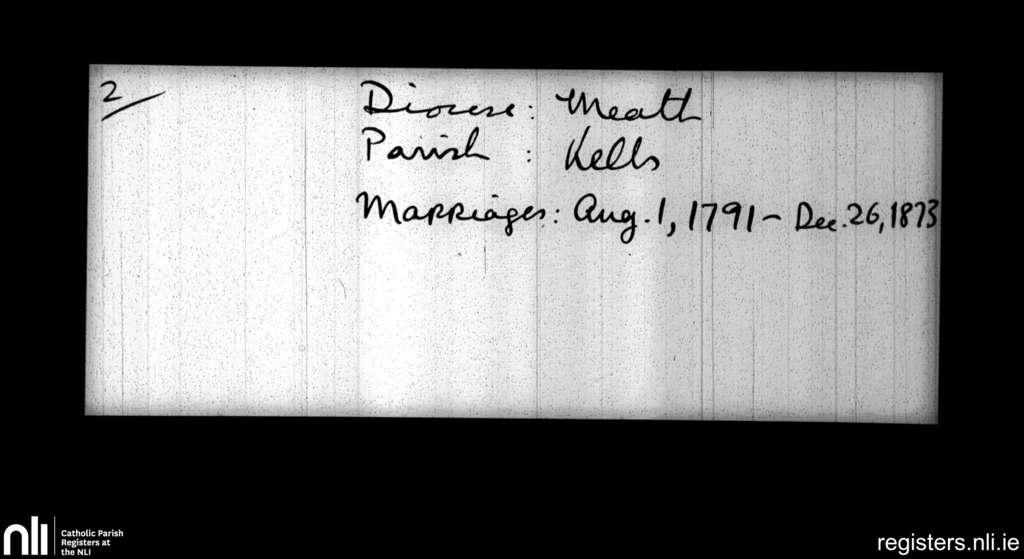 2
Diocese: Meath
Parish : Kells
Marriages: Aug. 1, 1791 - Dec. 26, 1873
nli
Catholic Parish
Registers at
the NLI
registers.nli.ie